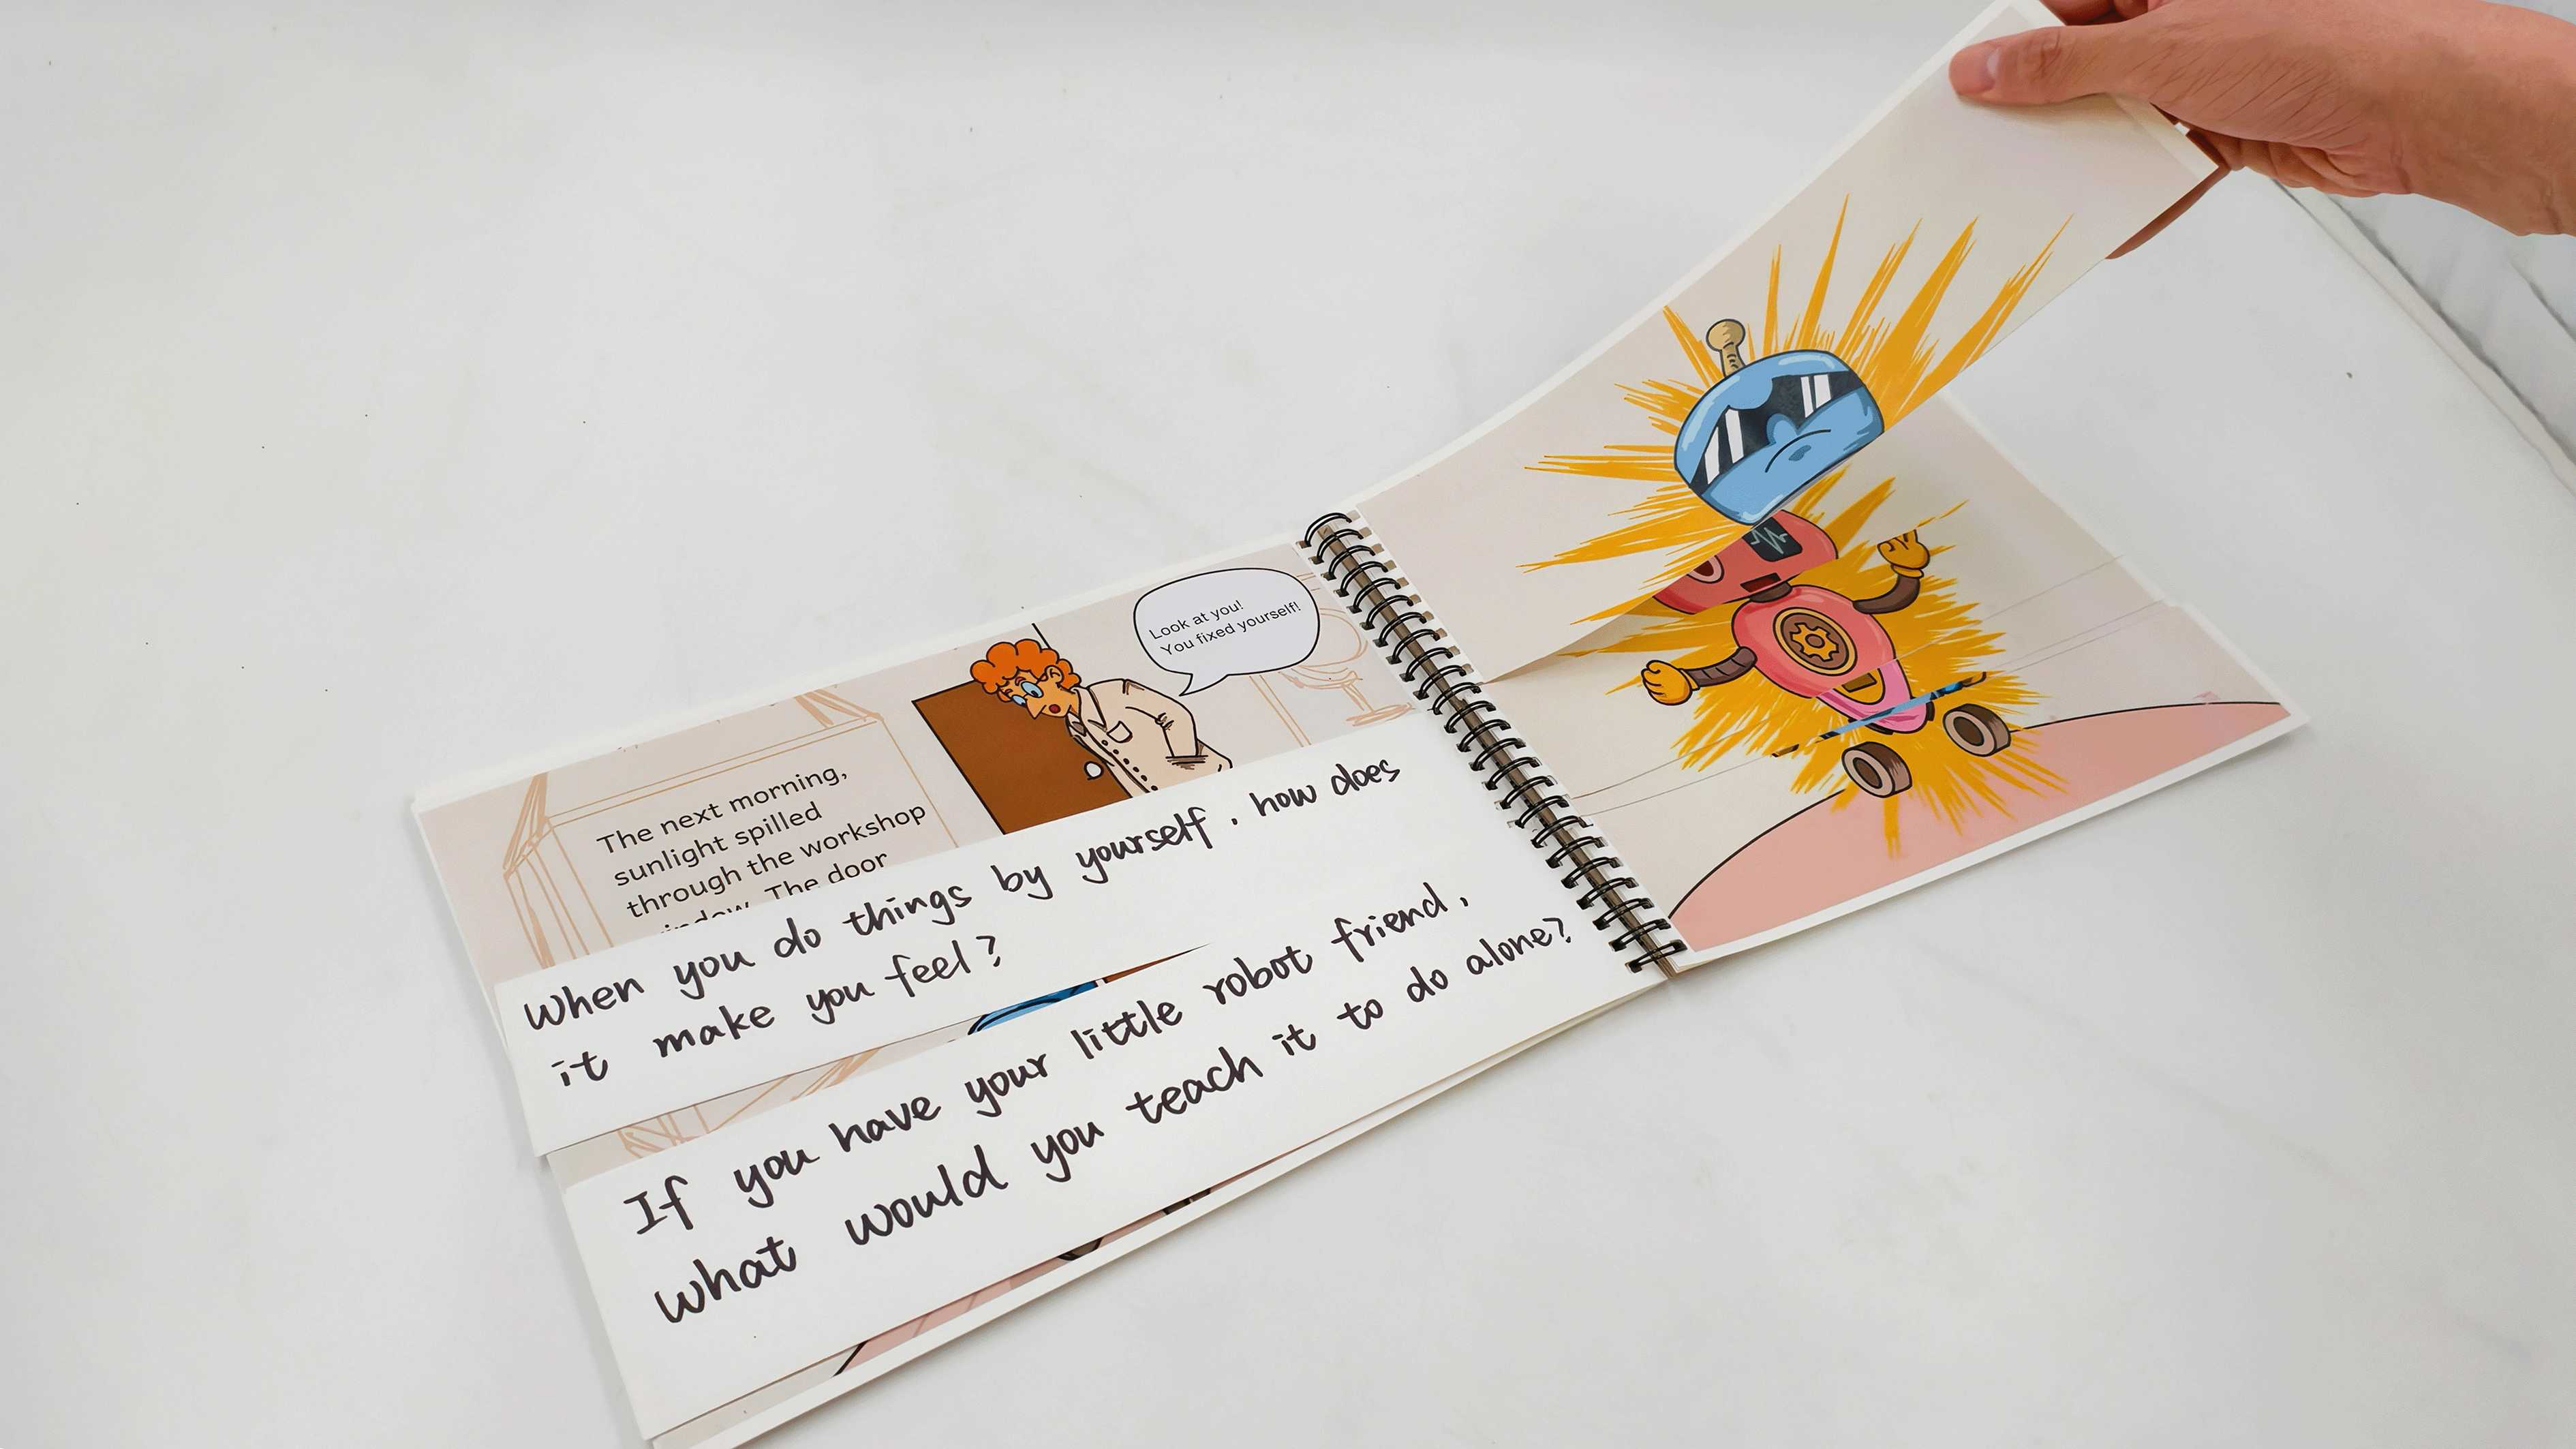 Look at you!
You fixed yourself!
The next morning,
sunlight spilled
through the workshop
The door
When you do things by yourself, how does
it make you feel?
If you have your little robot friend,
what would you teach it to do alone?